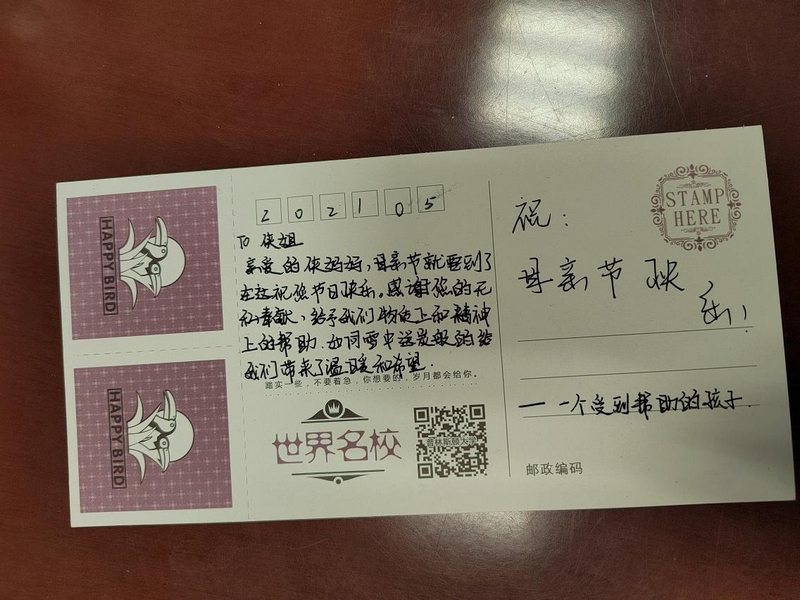 HAPPY BIRD
HAPPY BIRD
2 0 2 1 0 5
TO 侠姐
亲爱的侠妈妈，母亲节就要到了
在这祝您节日快乐。感谢您的无
私奉献，给予我们物质上和精神
上的帮助。如同雪中送炭般的给
我们带来了温暖和希望.
踏实一些，不要着急，你想要的，岁月都会给你。
世界名校
普林斯顿大学
STAMP
HERE
祝：
母亲节快
乐！！
—— 一个受到帮助的孩子.
邮政编码